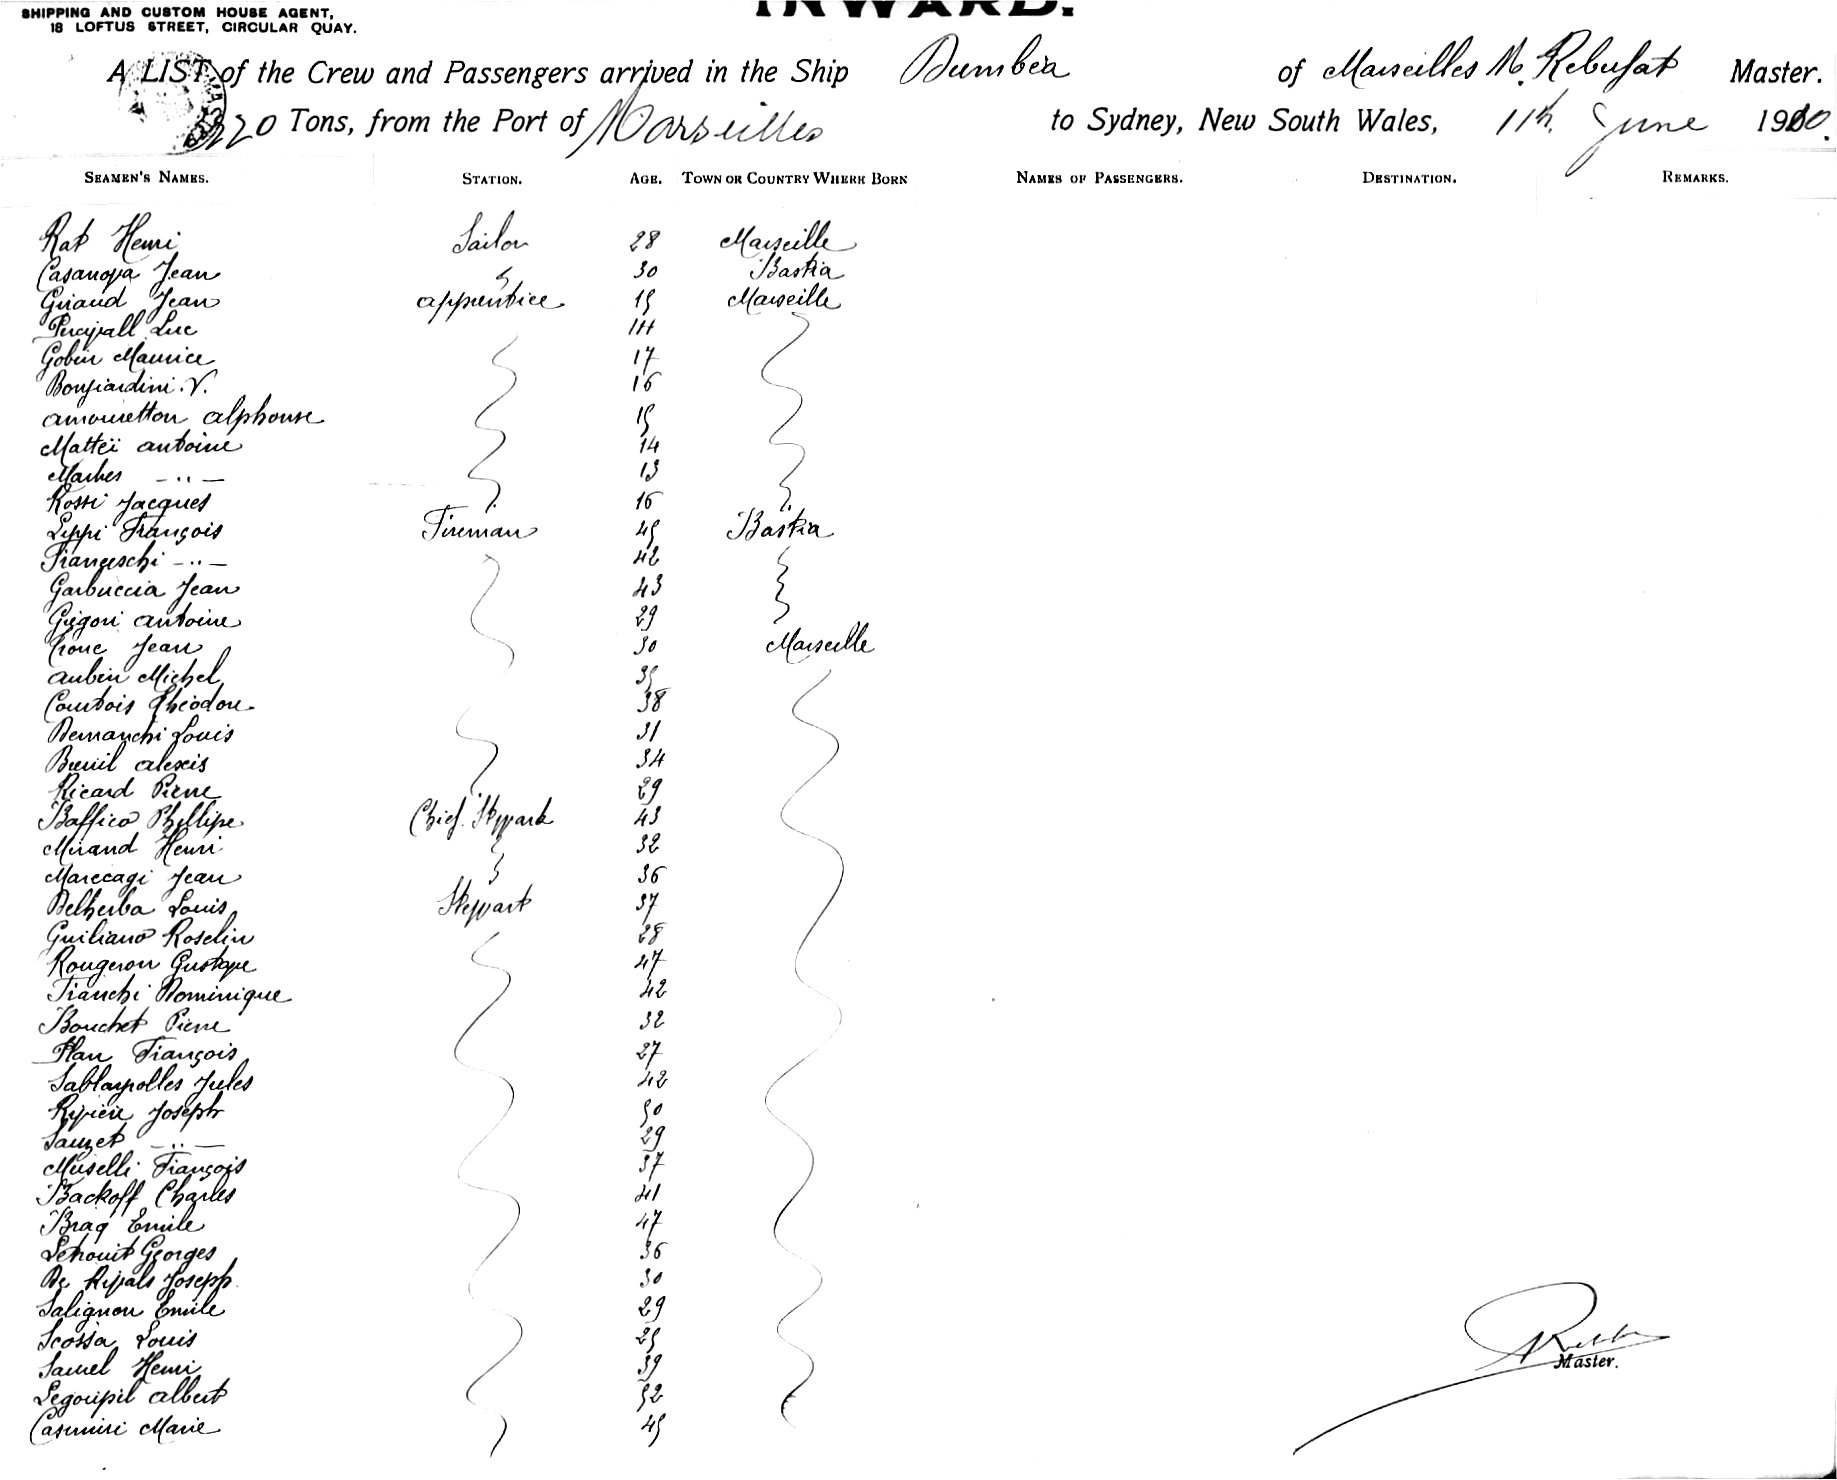 INWARD.
SHIPPING AND CUSTOM HOUSE AGENT,
18 LOFTUS STREET, CIRCULAR QUAY.
A LIST of the Crew and Passengers arrived in the Ship Dumbéa of Marseilles M. Rebufat Master.
Tons, from the Port of Marseilles to Sydney, New South Wales, 11th June 1910.
SEAMEN'S NAMES. STATION. AGE. TOWN OR COUNTRY WHERE BORN NAMES OF PASSENGERS. DESTINATION. REMARKS.
Rat Henri Sailor 28 Marseille
Casanova Jean 30 Bastia
Giraud Jean apprentice 15 Marseille
Percivall Luc 14
Gobin Maurice 17
Bongiardini. V. 16
amouretton alphonse 15
Matteï antoine 14
Maches -..- 13
Rossi Jacques 16
Lippi François Fireman 45 Bastia
Franceschi -..- 42
Garbuccia Jean 43
Grégori antoine 29
Crouc Jean 30 Marseille
aubin Michel 35
Courtois Théodore 38
Demarchi Louis 31
Breuil alexis 34
Ricard Pierre 29
Baffico Phillipe Chief. Stewark 43
Mirand Henri 32
Marccagi Jean 36
Delherba Louis Stewart 37
Guiliano Roselin 28
Rougeron Gustave 47
Franchi Dominique 42
Bouchet Pierre 32
Plan François 27
Sablayrolles Jules 42
Rivière Joseph 50
Sauzet -..- 29
Muselli François 37
Backoff Charles 41
Braq Emile 47
Lehouit Georges 36
De Rivals Joseph 30
Salignon Emile 29
Scossa Louis 25
Samel Henri 39
Legoupil albert 52
Casimiri Marie 45
Master.